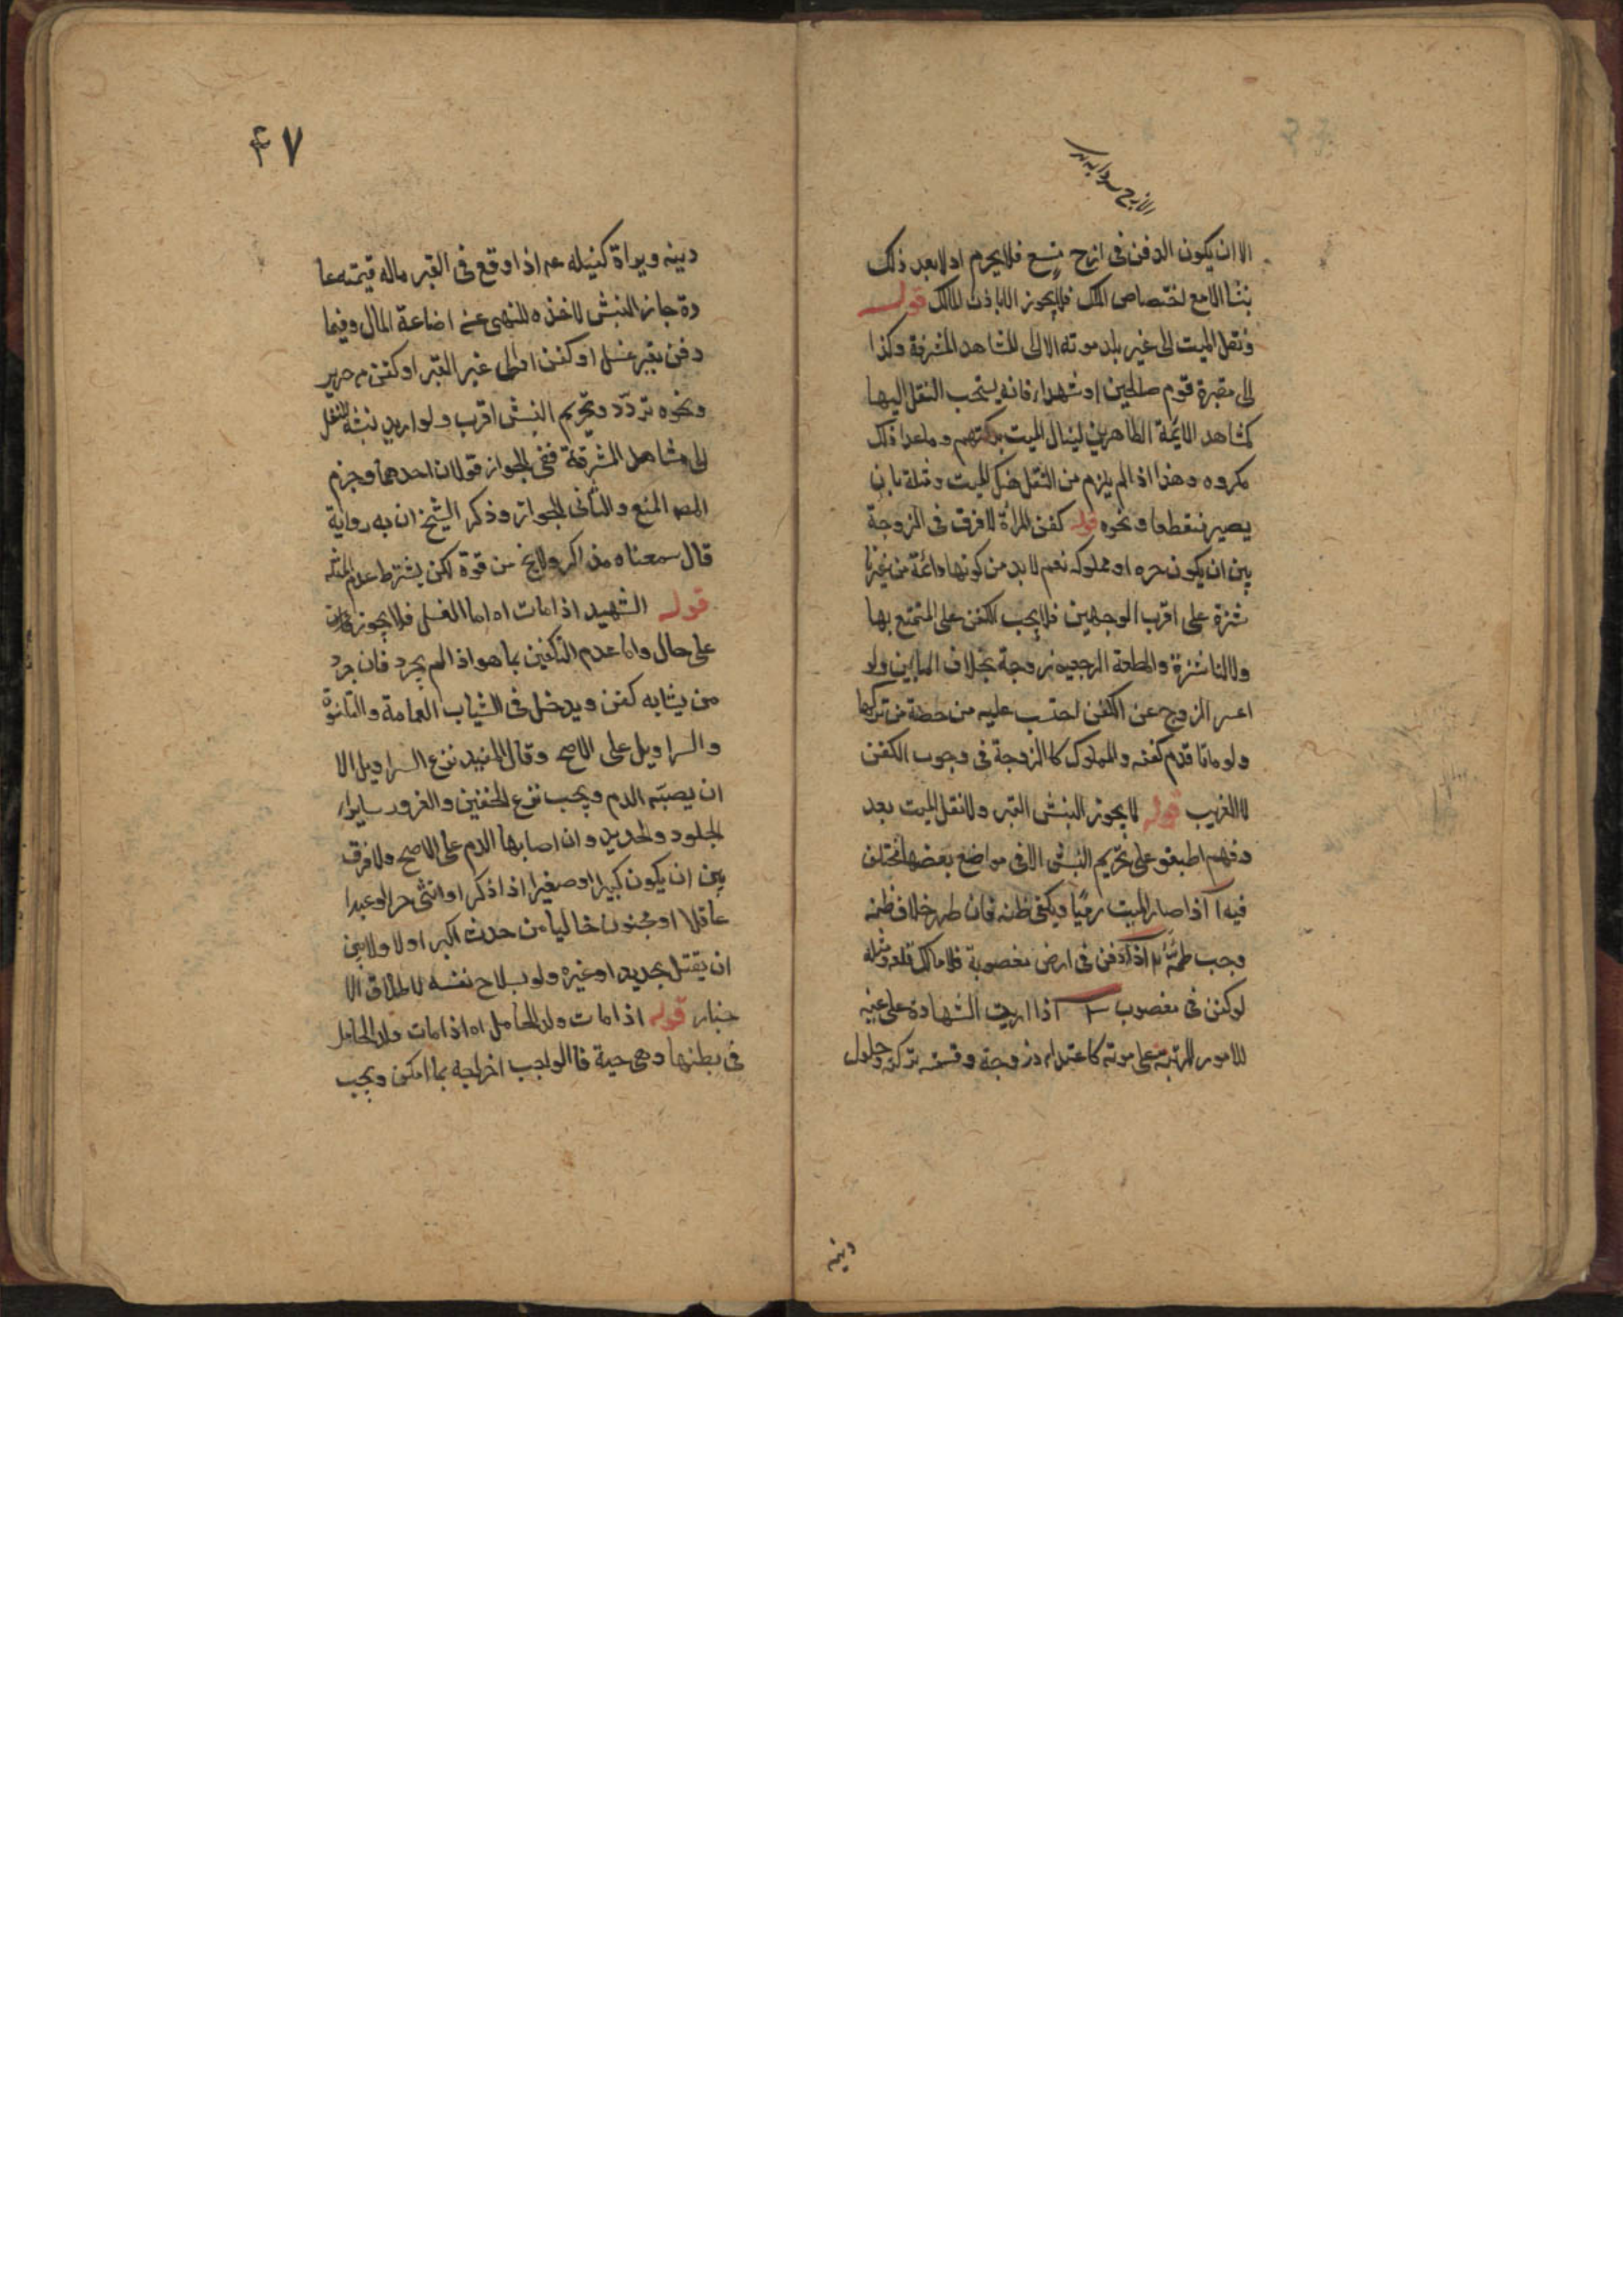 الا ان يكون الدفن فى ازج متسع فلا يحرم اذ لا يعد ذلك
نبشا الا مع اختصاص الملك فلا يجوز الا باذن المالك قوله
ونقل الميت الى غير بلد موته الا الى المشاهد المشرفة وكذا
الى مقبرة قوم صالحين او شهداء فانه يستحب النقل اليها
كمشاهد الائمة الطاهرين لينال الميت بركتهم وما عدا ذلك
مكروه وهذا اذا لم يلزم من النقل هتك الميت ومثلة بان
يصير متقطعا ونحوه قوله كفن المراة لا فرق فى الزوجة
بين ان يكون حره او مملوكه نعم لا بد من كونها دائمة من غير نا
شزة على اقرب الوجهين فلا يجب الكفن على المتمتع بها
ولا الناشزة والمطلقة الرجعيه زوجة بخلاف الباين ولو
اعسر الزوج عن الكفن احتسب عليه من حصة من تركتها
ولو ماتا قدم كفنه والمملوك كالزوجة فى وجوب الكفن
لا القريب قوله لا يجوز النبش القبر ولا نقل الميت بعد
دفنهم اطبقو على تحريم النبش الا فى مواضع بعضها مختلف
فيه ا اذا صار الميت رميما ويكفى ظنه فان ظهر خلاف ظنه
وجب طمه ٢ اذا دفن فى ارض مغصوبة فلمالك قلعه ومثله
لو كفن فى مغصوب ٣ اذا اريد الشهادة على عينه
للامور المترتبة على موته كاعتداد زوجة وقسمة تركته وحلول
دينه
٤٧
دينه وبراة كفيله عـ اذا وقع فى القبر ماله قيمته عا
دة جاز النبش لاخذه للنهى عن اضاعة المال وفيما
دفن بغير غسل او كفن او الى غير القبر او كفن من حرير
ونحوه تردّد وتحريم النبش اقرب ولو اريد نبشه للنقل
الى مشاهد المشرفة ففى الجواز قولان احدهما وجزم
المص المنع والثانى الجواز وذكر الشيخ ان به رواية
قال سمعناه مذاكره ولا يخ من قوة لكن يشترط عدم المثله
قوله الشهيد اذا مات اه اما الغسل فلا يجوز
على حال واما عدم التكفين بما هو اذا لم يجرد فان جرد
من ثيابه كفن ويدخل فى الثياب العمامة والقلنسوة
والسراويل على الاصح وقال المفيد نزع السراويل الا
ان يصبه الدم ويجب نزع الخفين والفرو وساير
الجلود والحديد وان اصابها الدم على الاصح ولا فرق
بين ان يكون كبيرا او صغيرا اذا ذكر او انثى حرا او عبدا
عاقلا او مجنون خاليا من حدث اكبر او لا ولا بين
ان يقتل بحديد او غيره ولو بسلاح نفسه لاطلاق الا
خبار قوله اذا مات ولد الحامل اه اذا مات ولد الحامل
فى بطنها وهى حية فا الواجب اخراجه بما امكن ويجب